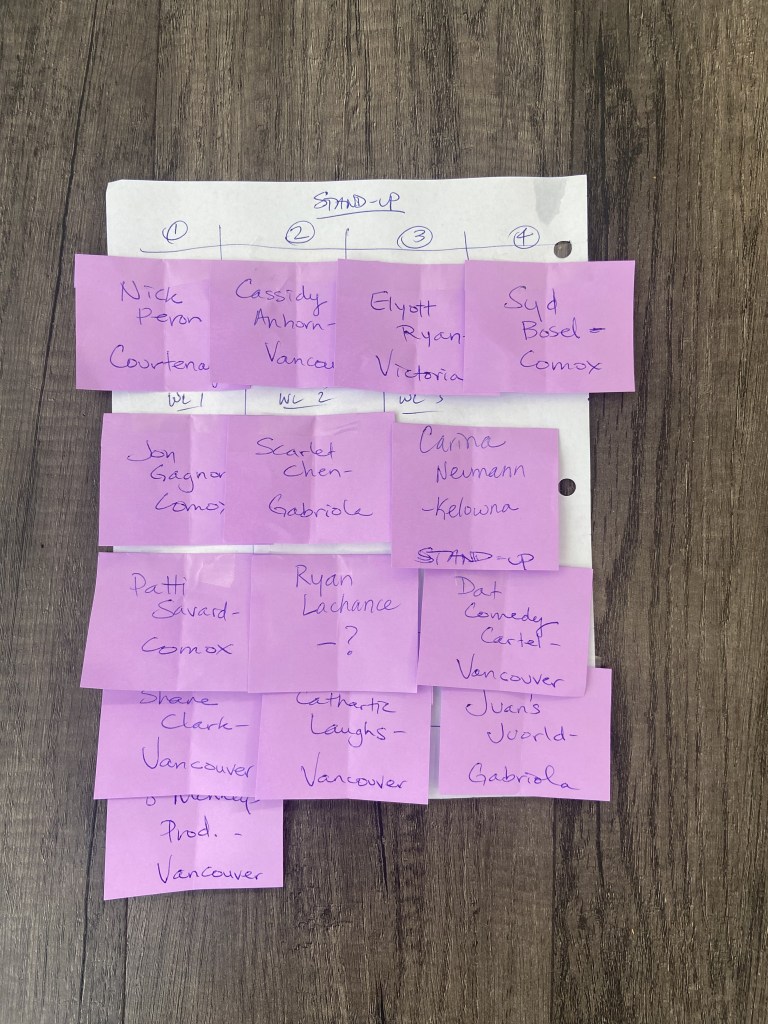 STAND-UP
① ② ③ ④
Nick
Peron
Courtena
Cassidy
Anhorn-
Vancou
Elyott
Ryan-
Victoria
Syd
Bosel-
Comox
WC 1 WC 2 WC 3
Jon
Gagnon
Comox
Scarlet
Chen-
Gabriola
Carina
Neumann
-Kelowna
STAND-UP
Patti
Savard-
Comox
Ryan
Lachance
-?
Dat
Comedy
Cartel-
Vancouver
Shane
Clark-
Vancouver
Cathartic
Laughs-
Vancouver
Juan's
Juorld-
Gabriola
Prod. -
Vancouver